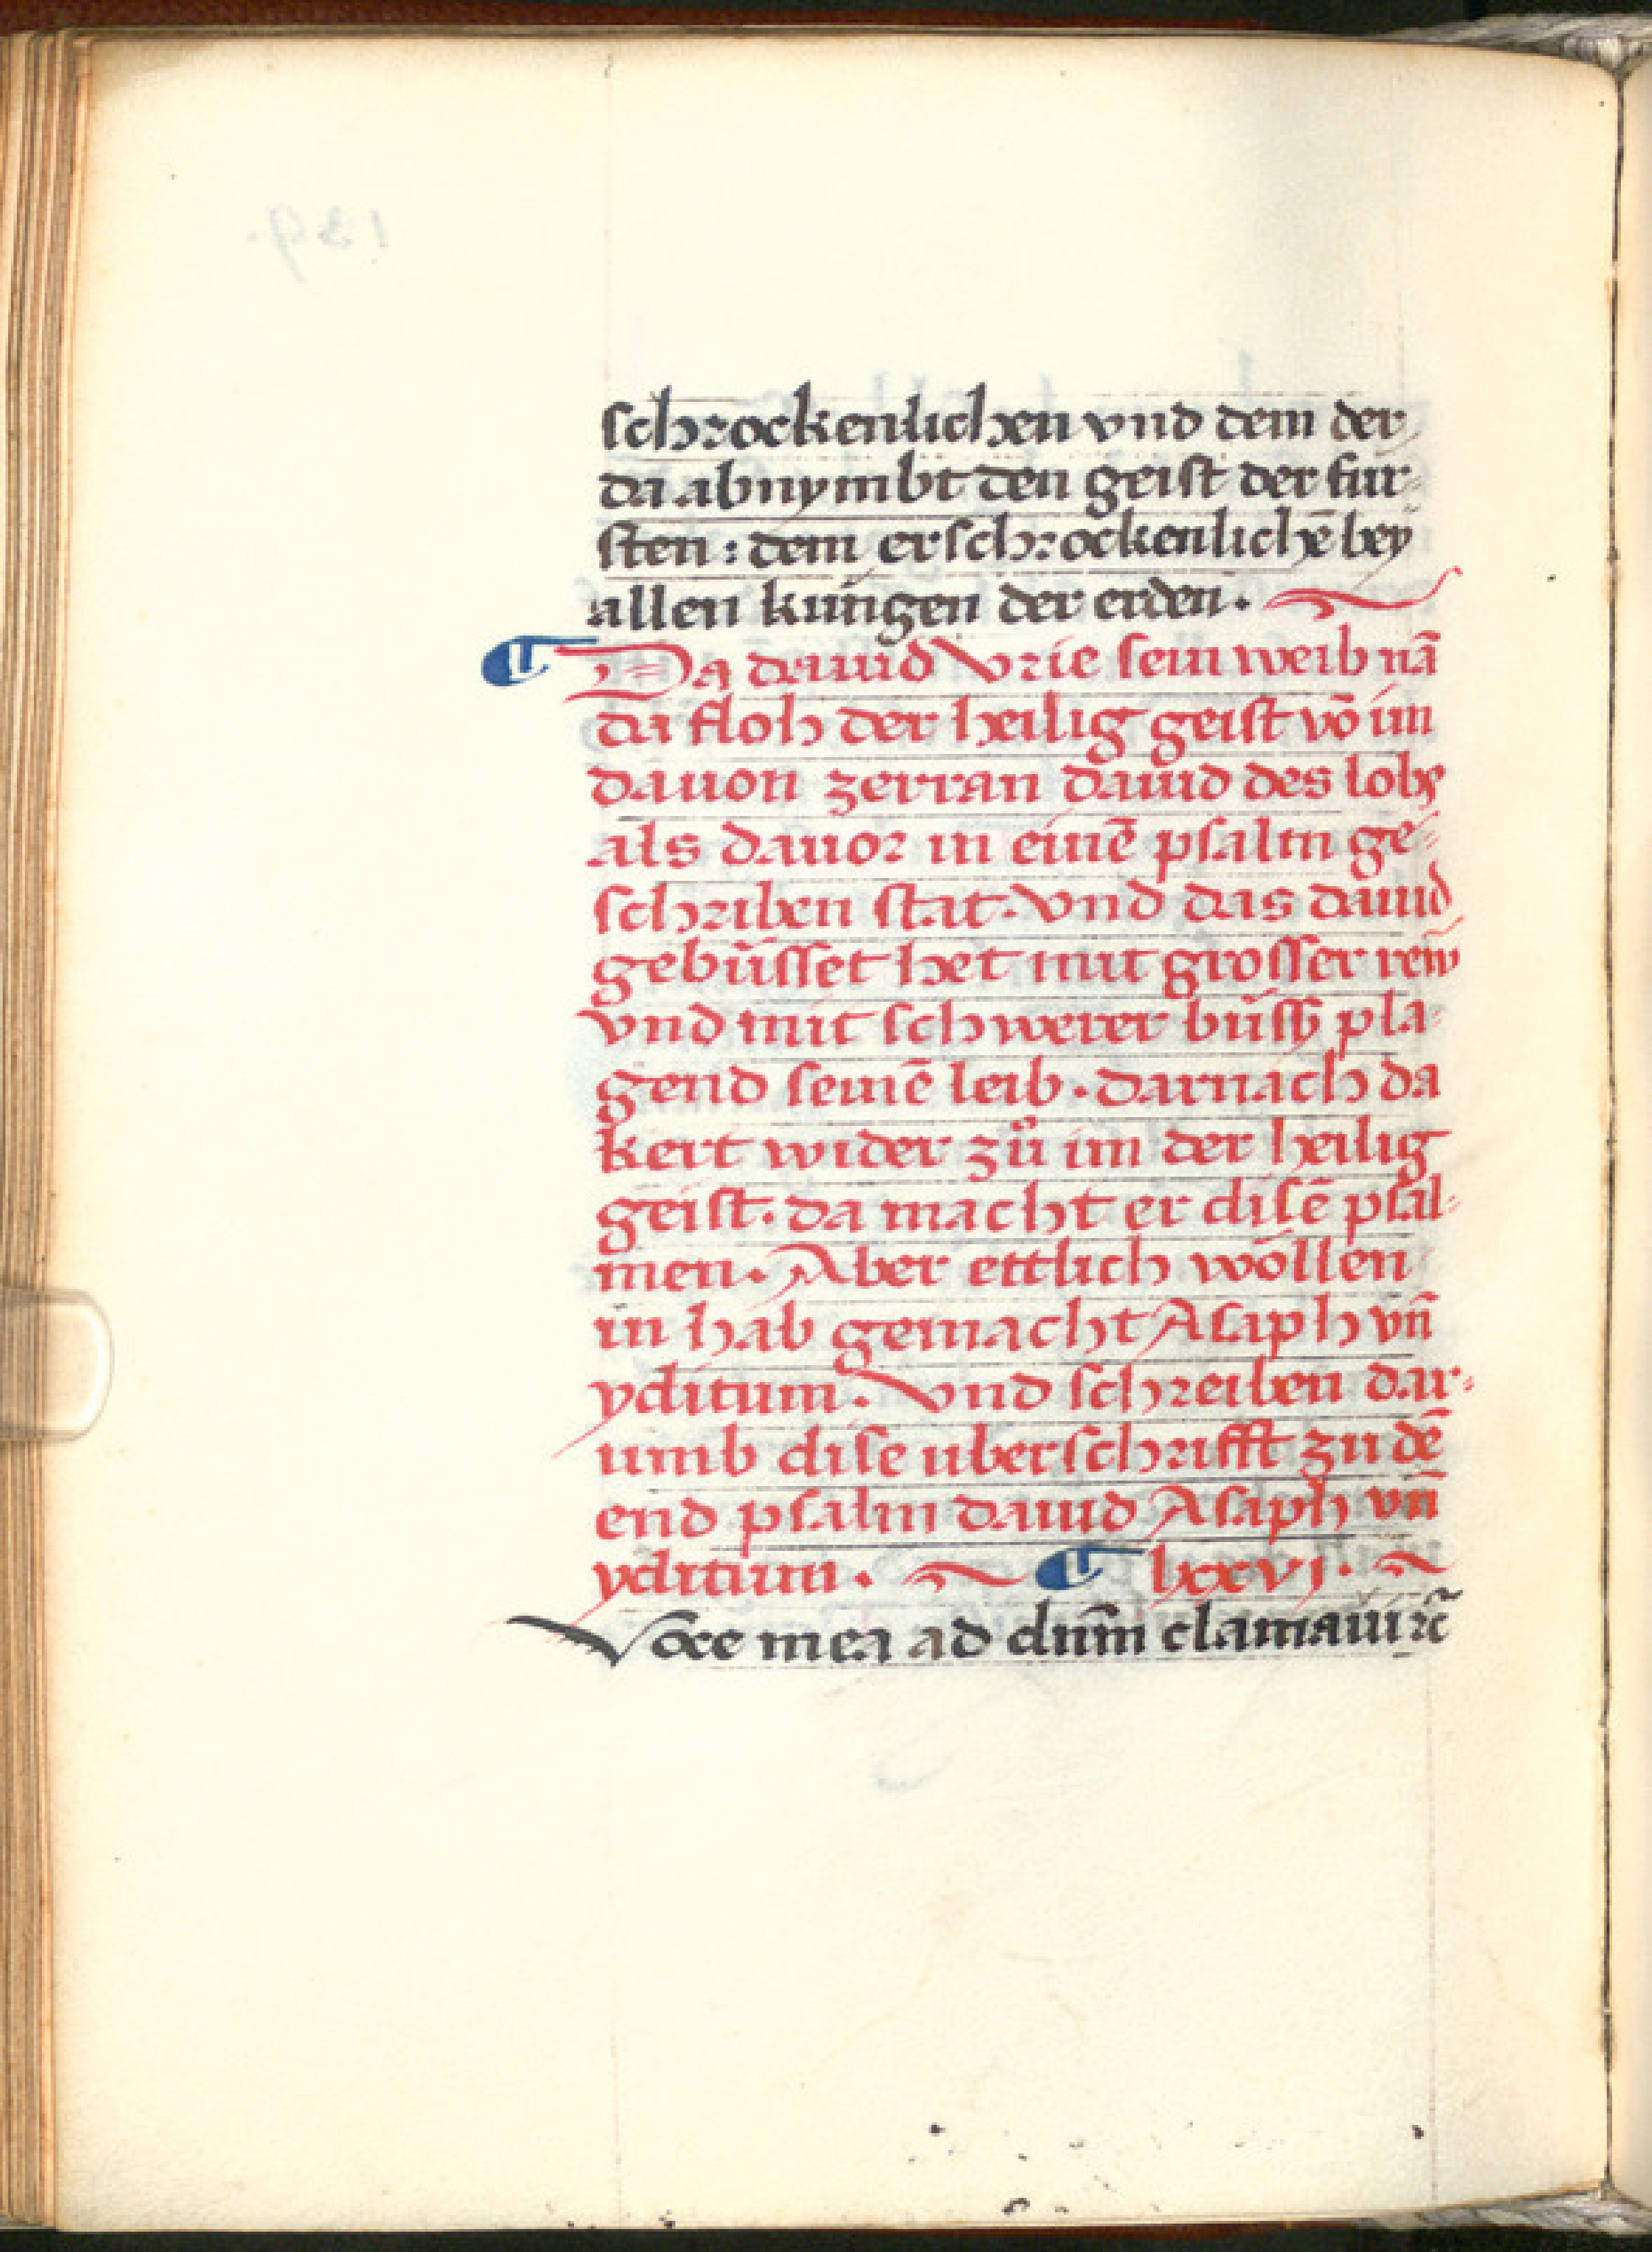 schrockenlichen vnd dem der
da abnymbt den geist der fur-
sten : dem erschrockenlichē bey
allen kungen der erden .
Da dauid Vrie sein weib nā
da floh der heilig geist vō im
dauon zerran dauid des lobs
als dauor in einē psalm ge-
schriben stat . Vnd das dauid
gebüsset het mit grosser rew
vnd mit schwerer büss pla-
gend seinē leib . Darnach da
kert wider zů im der heilig
geist . da macht er disē psal-
men . Aber ettlich wöllen
in hab gemacht Asaph vn̄
yditum . Vnd schreiben dar-
umb dise uberschrifft zu dē
end psalm dauid Asaph vn̄
yditum . lxxvj .
Voce mea ad dn̄m clamaui ꝛc̄